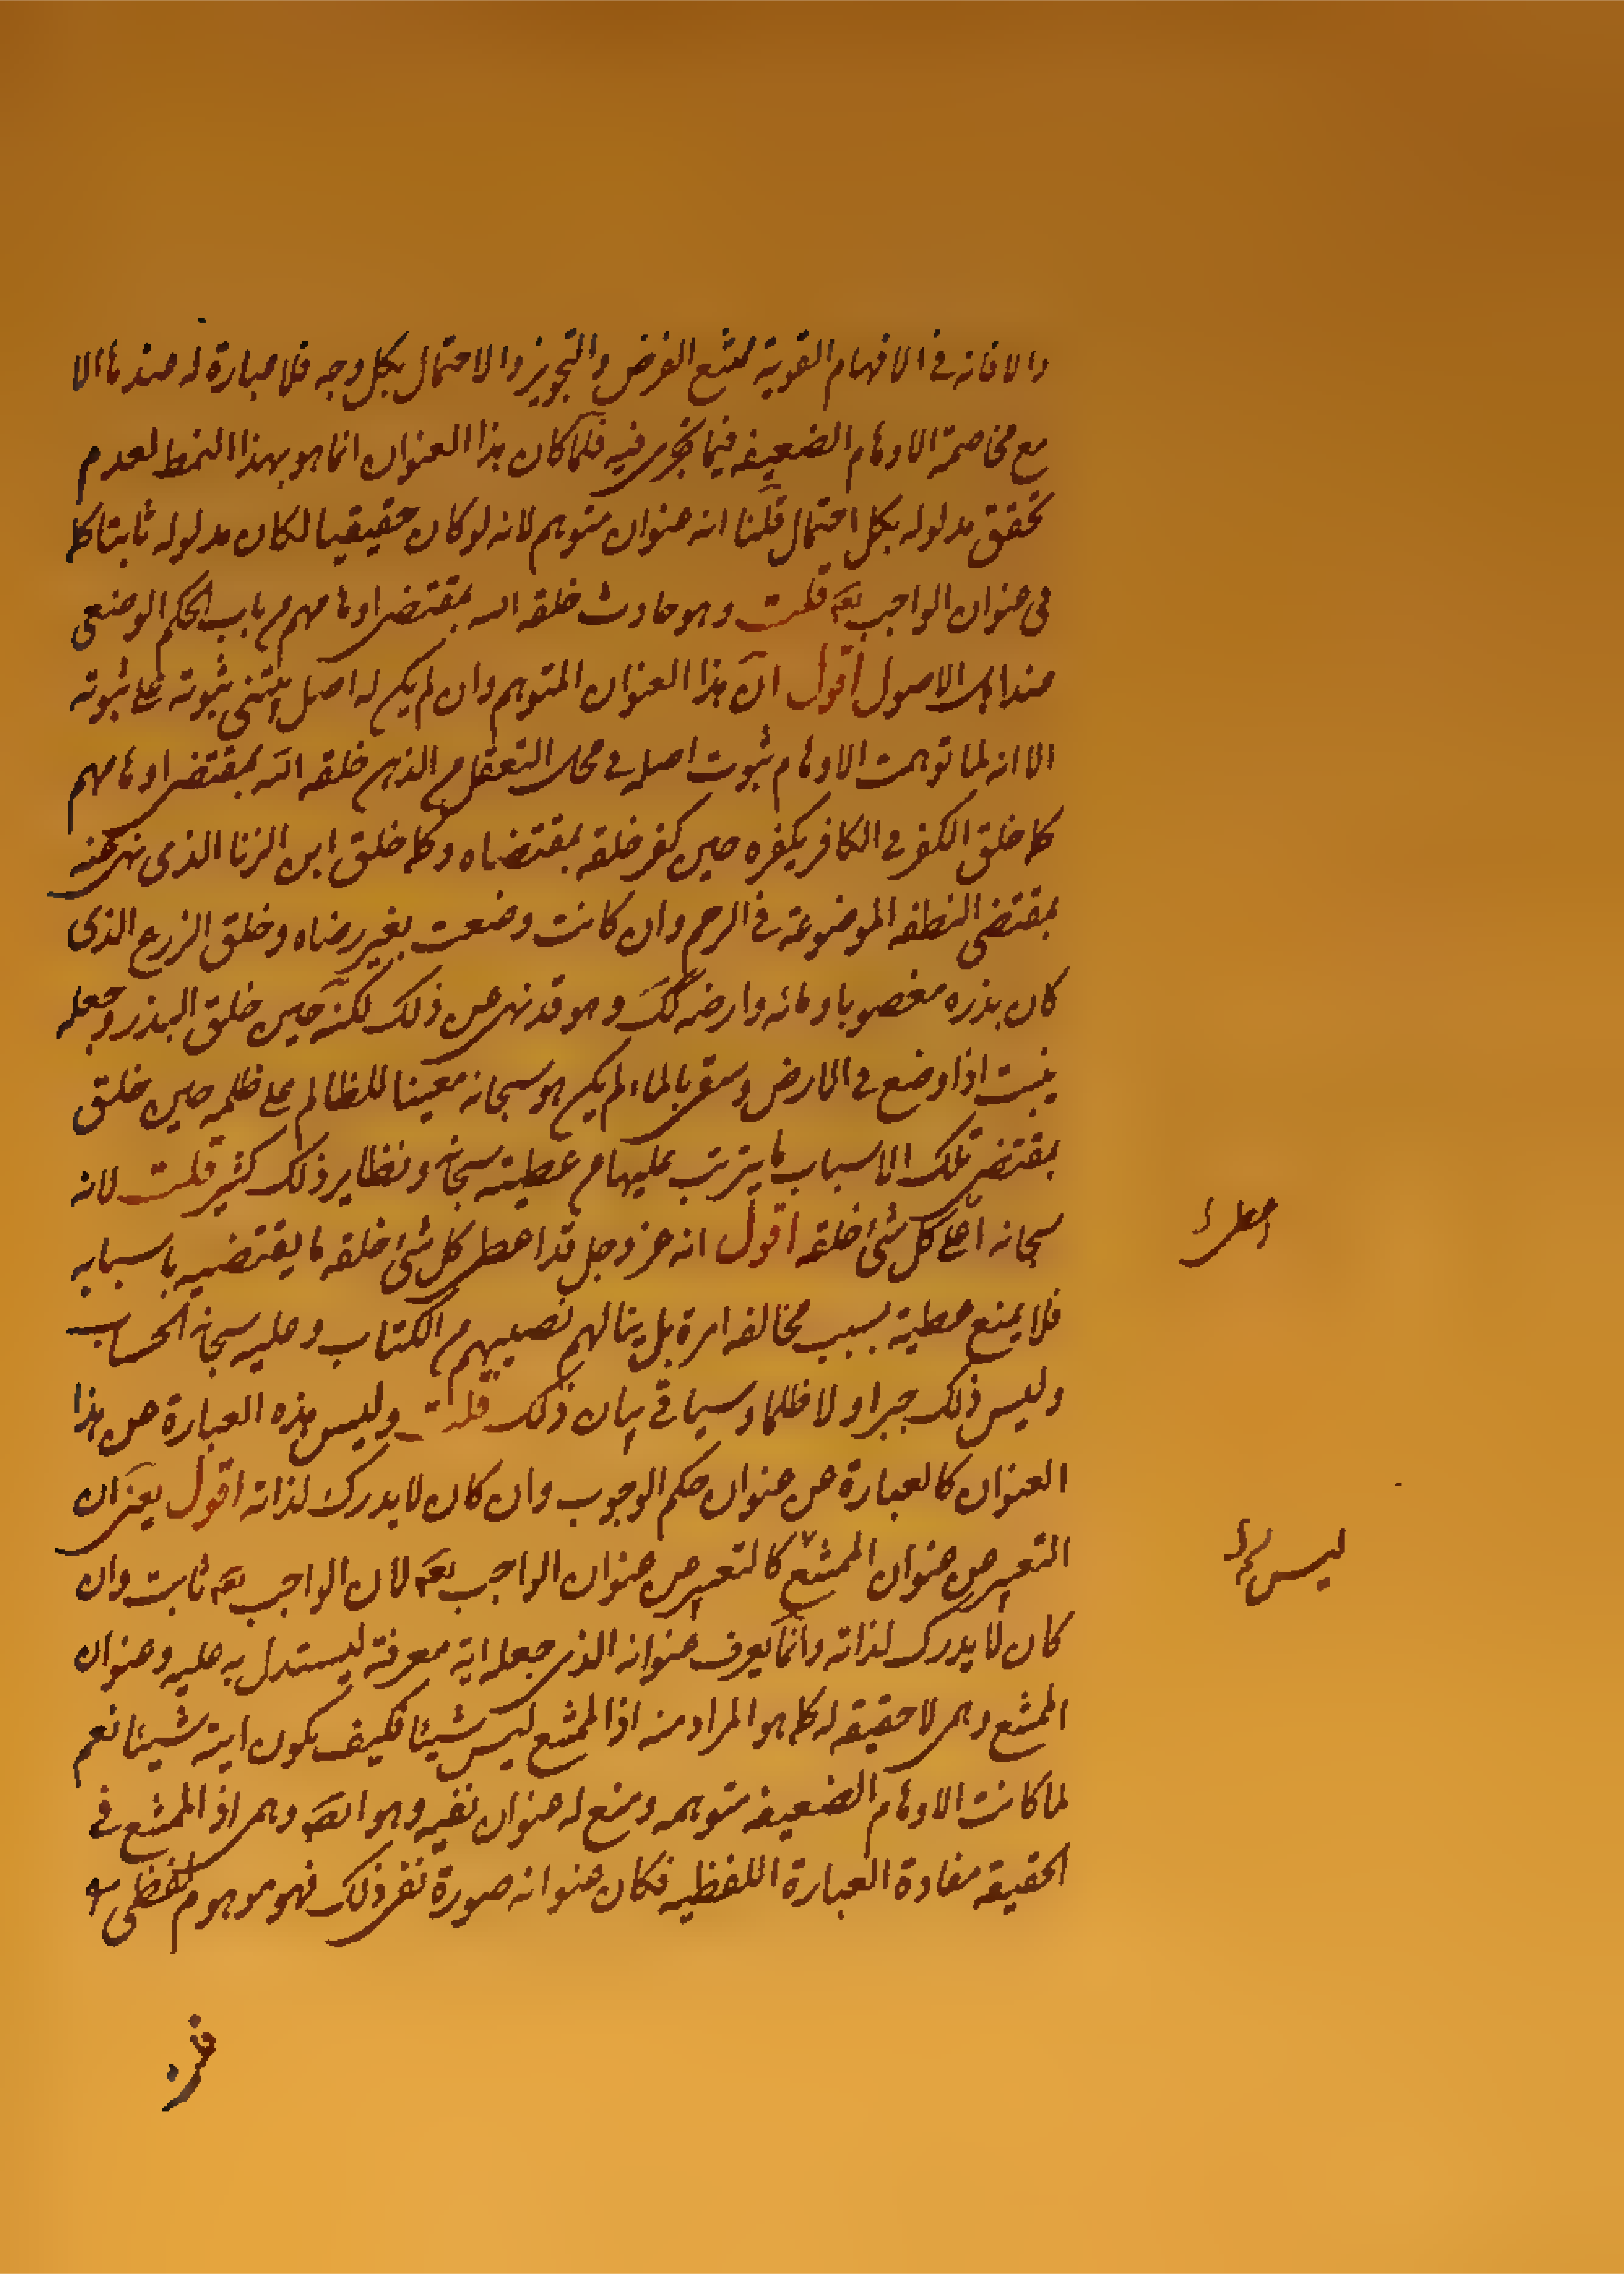 والا فانه في الافهام القوية ممتنع الفرض والتجويز والاحتمال بكل وجه فلا عبارة له عندها الا
مع مخاصمة الاوهام الضعيفه فيما تجرى فيه فلما كان هذا العنوان انما هو بهذا النمط لعدم
تحقق مدلوله بكل احتمال قلنا انه عنوان متوهم لانه لو كان حقيقيا لكان مدلوله ثابتا كما
فى عنوان الواجب تعه قلت وهو حادث خلقه الله بمقتضى اوهامهم من باب الحكم الوضعى
عند اهل الاصول اقول ان هذا العنوان المتوهم وان لم يكن له اصل يبتنى ثبوته على ثبوته
الا انه لما توهمت الاوهام ثبوت اصله في محل التعقل من الذهن خلقه الله بمقتضى اوهامهم
كما خلق الكفر في الكافر بكفره حين كفر خلقه بمقتضاه وكما خلق ابن الزنا الذى نهى عنه
بمقتضى النطفه الموضوعة في الرحم وان كانت وضعت بغير رضاه وخلق الزرع الذى
كان بذره مغصوبا ومائه وارضه كك وهو قد نهى عن ذلك لكنه حين خلق البذر وجعله
ينبت اذا وضع في الارض وسقى بالماء لم يكن هو سبحانه معينا للظالم على ظلمه حين خلق
بمقتضى تلك الاسباب ما يترتب عليها من عطيته سبحانه ونظاير ذلك كثير قلت لانه
سبحانه اعطى كل شئ خلقه اقول انه عز وجل قد اعطى كل شئ خلقه ما يقتضيه باسبابه
فلا يمنع عطيته بسبب مخالفه امره بل ينالهم نصيبهم من الكتاب وعليه سبحانه الحساب
وليس ذلك جبرا ولا ظلما وسياتى بيان ذلك قلت وليس هذه العبارة عن هذا
العنوان كالعبارة عن عنوان حكم الوجوب وان كان لا يدرك لذاته اقول يعنى ان
التعبير عن عنوان الممتنع كالتعبير عن عنوان الواجب تعه لان الواجب تعه ثابت وان
كان لا يدرك لذاته وانما يعرف عنوانه الذى جعله اية معرفة ليستدل به عليه وعنوان
الممتنع وهمى لا حقيقه له كما هو المراد منه اذ الممتنع ليس شيئا فكيف يكون ايته شيئا نعم
لما كانت الاوهام الضعيفه متوهمه وضع له عنوان نفيه وهو ايضا وهمى اذ الممتنع في
الحقيقه مفادة العبارة اللفظيه فكان عنوانه صورة نفى ذلك فهو موهوم لفظى
اعطى
ليس